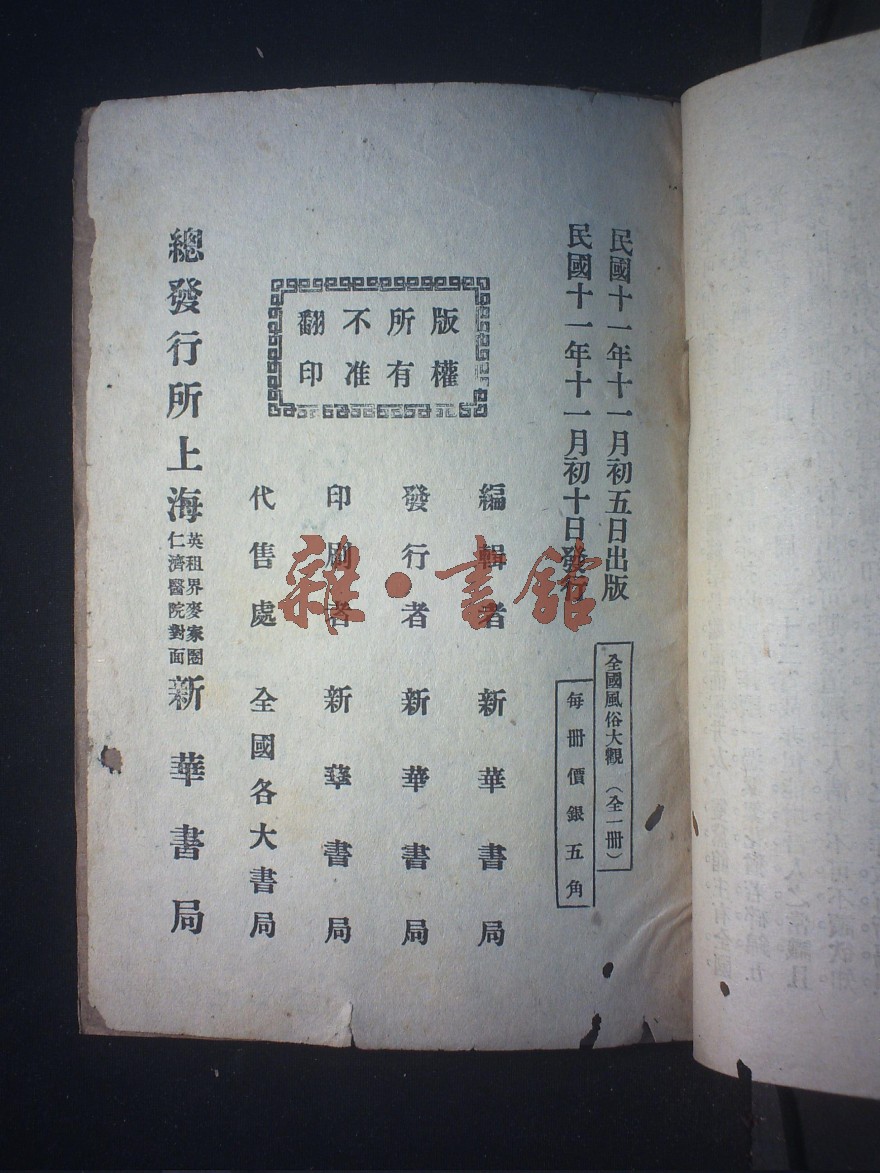 民國十一年十一月初五日出版
民國十一年十一月初十日發行
全國風俗大觀（全一冊）
每冊價銀五角
版權
所有
不准
翻印
編輯者 新華書局
發行者 新華書局
印刷者 新華書局
代售處 全國各大書局
總發行所上海英租界麥家圈仁濟醫院對面新華書局
雜·書館